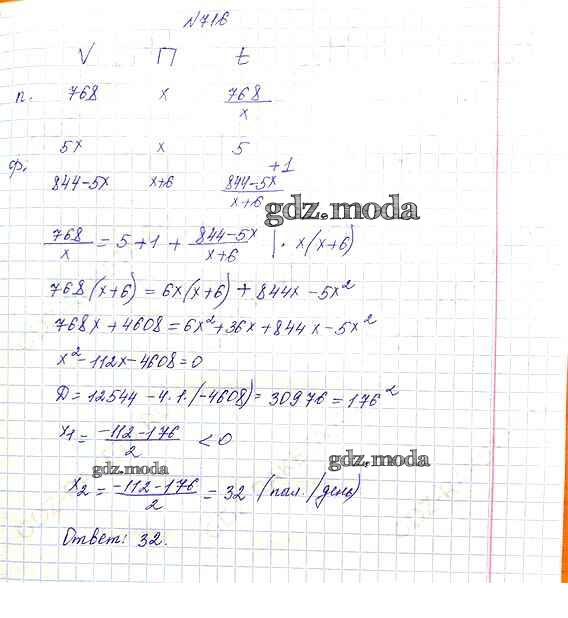 N716
V П t
п. 768 x 768/x
5x x 5
ф. +1
844-5x x+6 844-5x/x+6
gdz.moda
768/x = 5+1+ 844-5x/x+6 | · x(x+6)
768(x+6) = 6x(x+6) + 844x - 5x²
768x + 4608 = 6x² + 36x + 844x - 5x²
x² - 112x - 4608 = 0
D = 12544 - 4·1·(-4608) = 30976 = 176²
x₁ = -112-176/2 < 0
gdz.moda gdz.moda
x₂ = -112-176/2 = 32 (пал./день)
Ответ: 32.